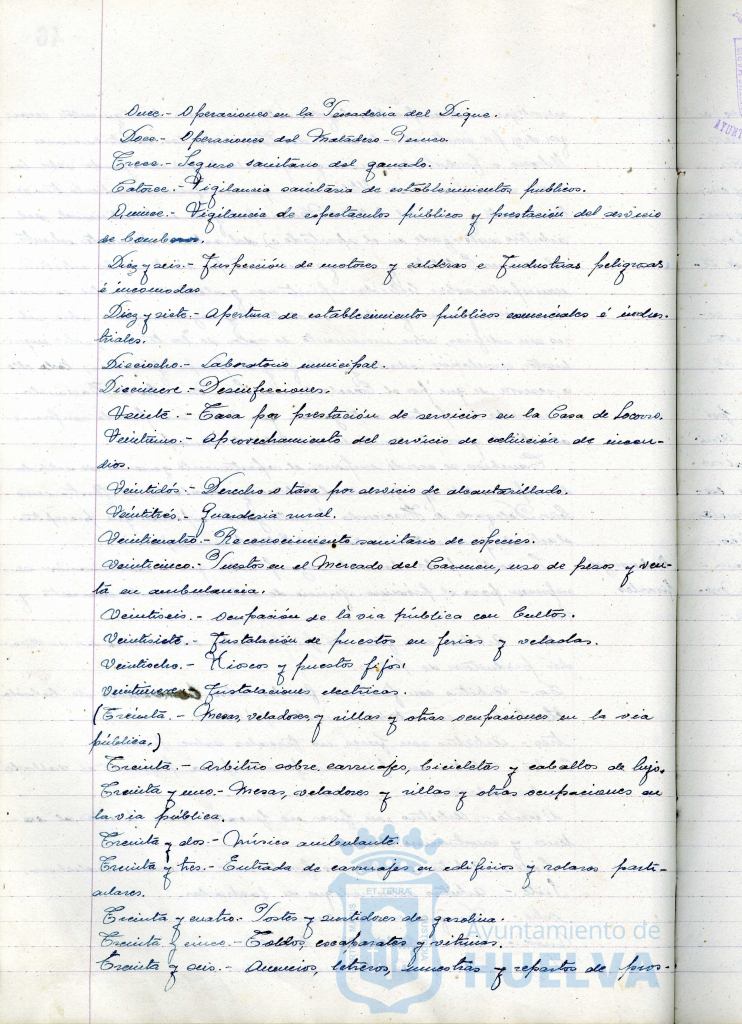 Once.- Operaciones en la Pescaderia del Dique.
Doce.- Operaciones del Matadero
Trece.- Seguro sanitario del ganado.
Catorce.- Vigilancia sanitaria de establecimientos publicos.
Quince.- Vigilancia de espectaculos públicos y prestación del servicio
de bomberos.
Diez y seis.- Inspección de motores y calderas e Industrias peligrosas
é incomodas
Diez y siete.- Apertura de establecimientos públicos comerciales é indus-
triales.
Dieciocho.- Laboratorio municipal.
Diecinueve.- Desinfecciones.
Veinte.- Tasa por prestación de servicios en la Casa de Socorro.
Veintiuno.- Aprovechamiento del servicio de extinción de incen-
dios.
Veintidós.- Derecho o tasa por servicio de alcantarillado.
Veintitrés.- Guarderia rural.
Veinticuatro.- Reconocimiento sanitario de especies.
Veinticinco.- Puestos en el Mercado del Carmen, uso de pesos y ven-
ta en ambulancia.
Veintiseis.- Ocupación de la via pública con bultos.
Veintisiete.- Instalación de puestos en ferias y veladas.
Veintiocho.- Kioscos y puestos fijos.
Veintinueve Instalaciones electricas.
(Treinta.- Mesas, veladores, y sillas y otras ocupaciones en la via
pública.)
Treinta.- Arbitrio sobre carruajes, bicicletas y caballos de lujo.
Treinta y uno.- Mesas, veladores y sillas y otras ocupaciones en
la via pública.
Treinta y dos.- Música ambulante.
Treinta y tres.- Entrada de carruajes en edificios y solares parti-
culares.
Treinta y cuatro.- Postes y surtidores de gasolina.
Treinta y cinco.- Toldos, escaparates y vitrinas.
Treinta y seis.- Anuncios, letreros, muestras y repartos de pros-
Ayuntamiento de
HUELVA